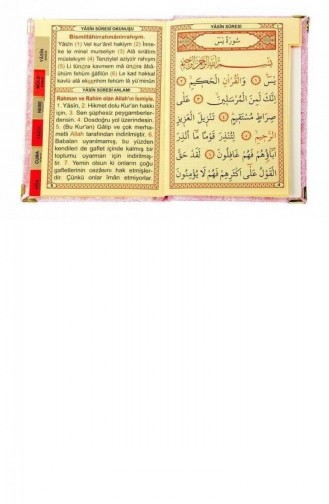 YÂSÎN SÛRESİ OKUNUŞU
Bismillâhirrahmânirrahıym.
Yâsîn (1) Vel kur'ânil hakiym (2) İnne-
ke le minel murseliyn (3) Alâ sırâtım
mustekıym (4) Tenziylel aziyzir rahıym
(5) Li tünzira kavmem mâ ünzira âbâ-
ühüm fehüm ğâfilûn (6) Le kad hakkal
kavlü alâ ekserihim fehüm lâ yü'minûn
YÂSÎN SÛRESİ ANLAMI
Rahman ve Rahim olan Allah'ın ismiyle.
1. Yâsîn, 2. Hikmet dolu Kur'an hakkı
için, 3. Sen şüphesiz peygamberler-
densin. 4. Dosdoğru yol üzerindesin.
5. (Bu Kur'an) Gâlip ve çok merha-
metli Allah tarafından indirilmiştir. 6.
Babaları uyarılmamış, bu yüzden
kendileri de gaflet içinde kalmış bir
toplumu uyarman için indirilmiş-
tir. 7. Yemin olsun ki onların çoğu
gafletlerinin cezâsını hak etmişler-
dir. Çünkü onlar îmân etmiyorlar.
YÂSİN
CUMA
YÂSÎN SÛRESİ
سُورَةُ يٰسٓ
يٰسٓ وَالْقُرْاٰنِ الْحَكِيمِ
اِنَّكَ لَمِنَ الْمُرْسَلِينَ عَلٰى
صِرَاطٍ مُسْتَقِيمٍ تَنْزِيلَ الْعَزِيزِ
الرَّحِيمِ لِتُنْذِرَ قَوْمًا مَٓا اُنْذِرَ
اٰبَٓاؤُهُمْ فَهُمْ غَافِلُونَ لَقَدْ حَقَّ
الْقَوْلُ عَلٰٓى اَكْثَرِهِمْ فَهُمْ لَا يُؤْمِنُونَ